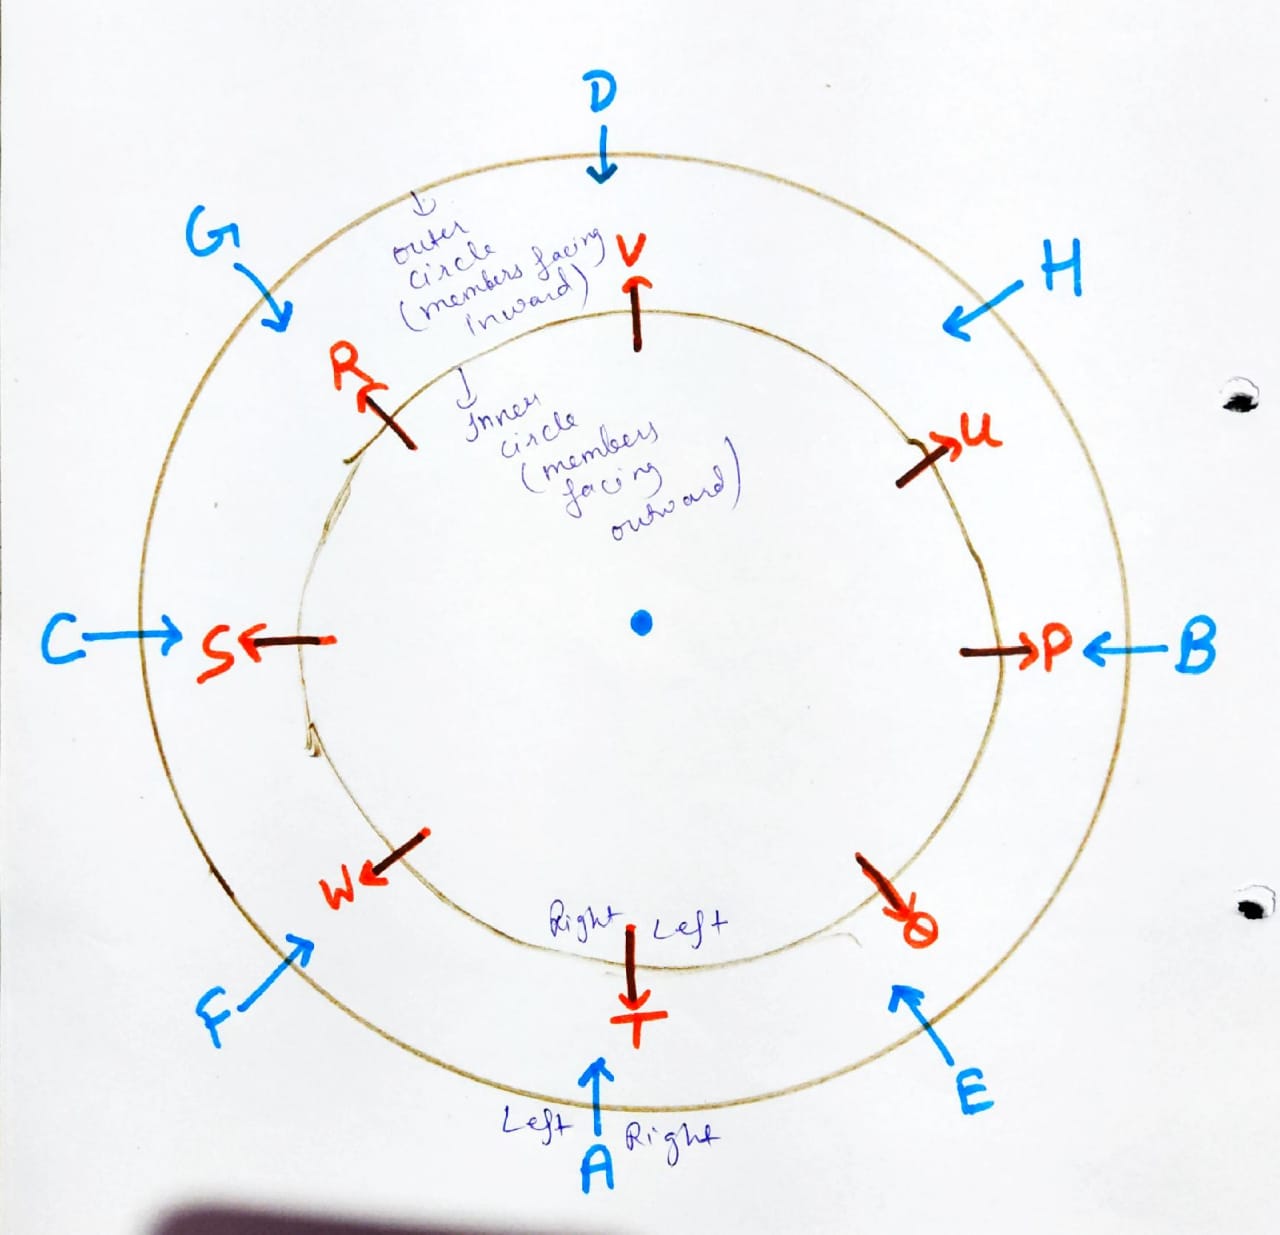 D
G
↓
outer
circle
(members facing
inward)
V
H
R
↓
Inner
circle
(members
facing
outward)
U
C
S
P
B
W
Right
Left
Q
F
T
E
Left
Right
A